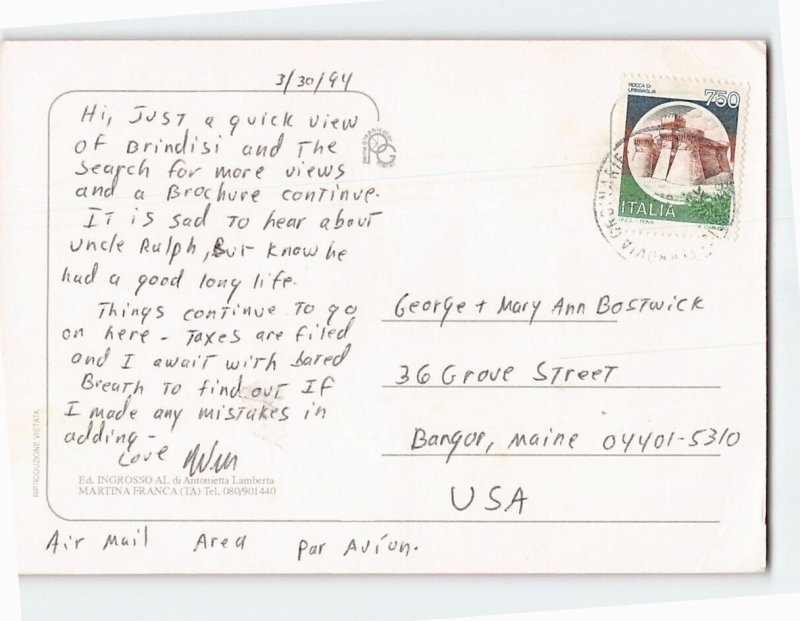 3/30/94
Hi, Just a quick view
of Brindisi and The
Search for more views
and a Brochure continue.
It is sad to hear about
uncle Ralph, But know he
had a good long life.
Things continue to go
on here - Taxes are filed
and I await with bared
Breath to find out If
I made any mistakes in
adding -
Love
Ed. INGROSSO AL di Antonietta Lamberta
MARTINA FRANCA (TA) Tel. 080/901440
RIPRODUZIONE VIETATA
ROCCA DI
URBISAGLIA
750
ITALIA
George + Mary Ann Bostwick
36 Grove Street
Bangor, Maine 04401-5310
USA
Air Mail Area Par Avion.